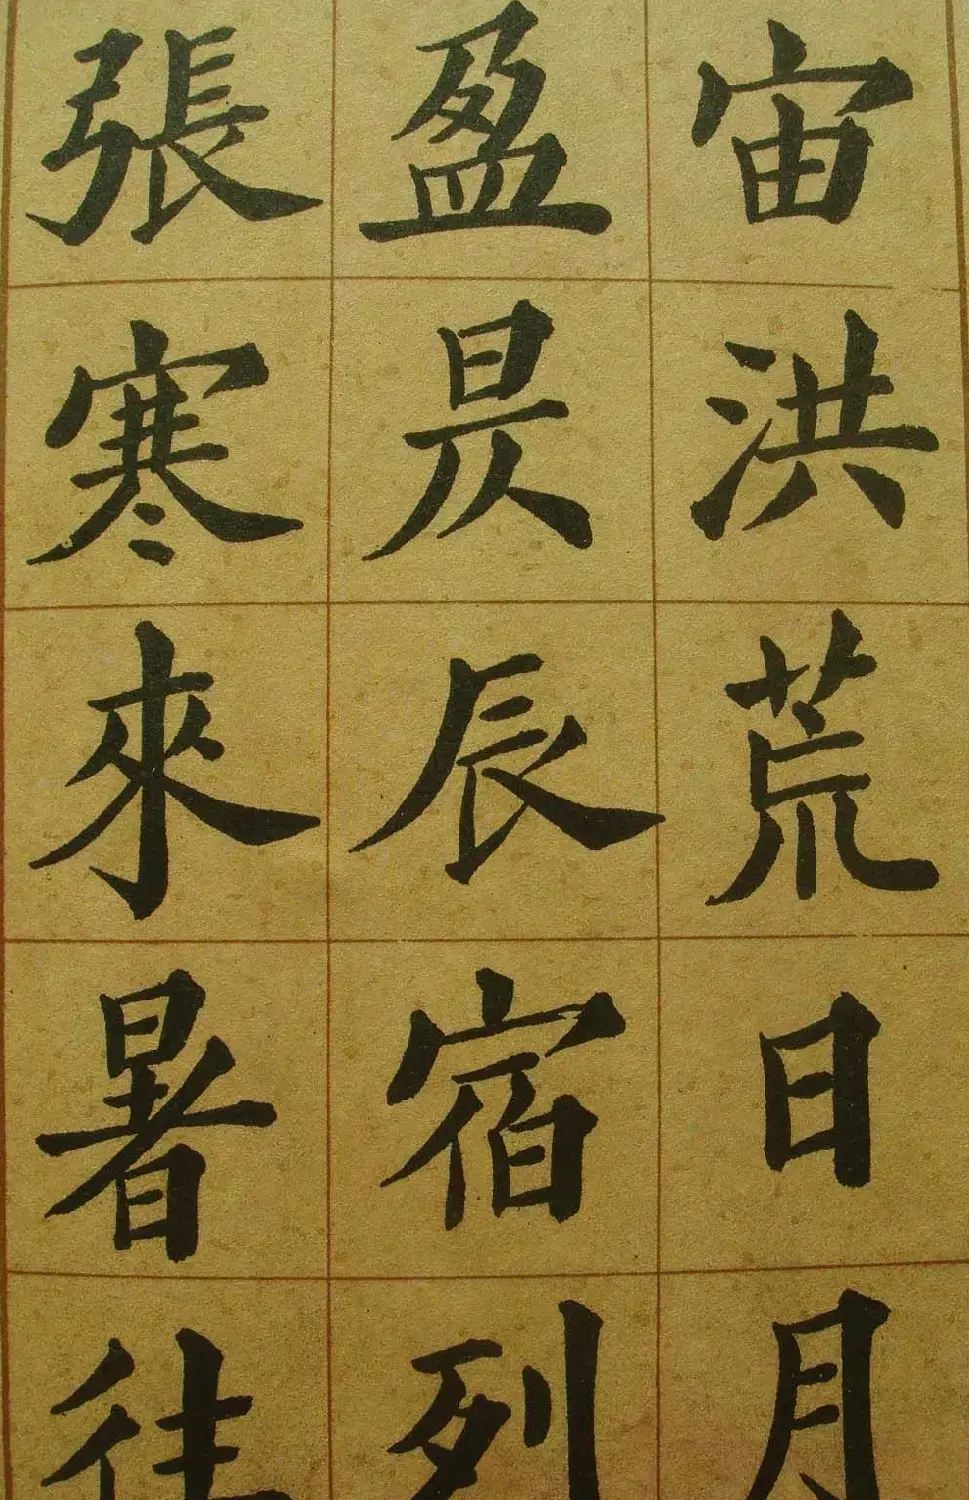 宙洪荒日月
盈昃辰宿列
張寒來暑往